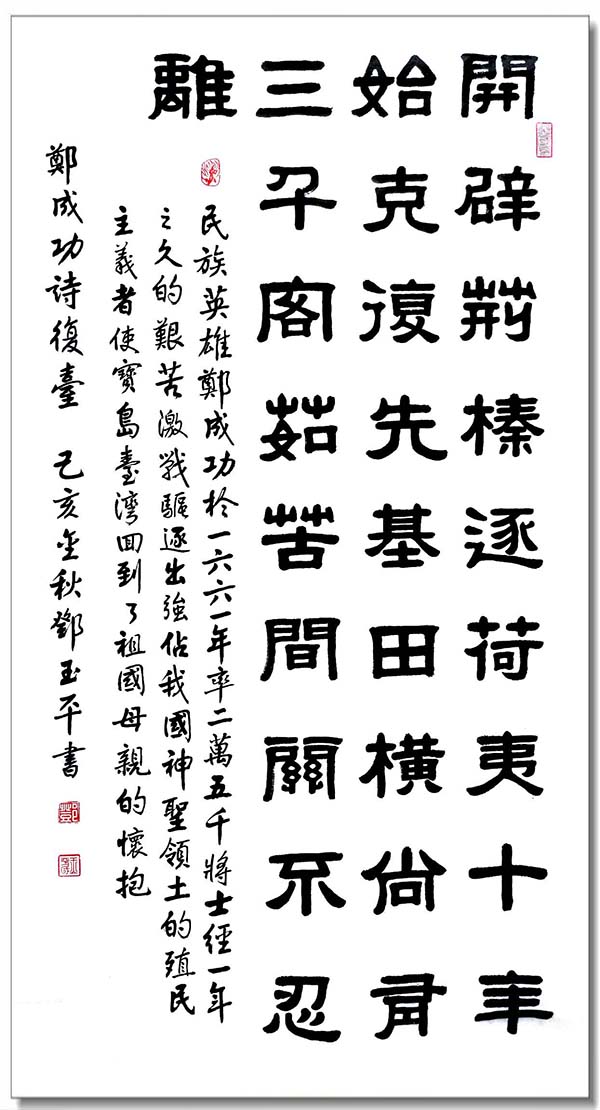 開辟荊榛逐荷夷十年
始克復先基田橫尚有
三千客茹苦間關不忍
離
民族英雄鄭成功於一六六一年率二萬五千將士經一年
之久的艱苦激戰驅逐出強佔我國神聖領土的殖民
主義者使寶島臺湾回到了祖國母親的懷抱
鄭成功詩復臺 己亥金秋鄧玉平書